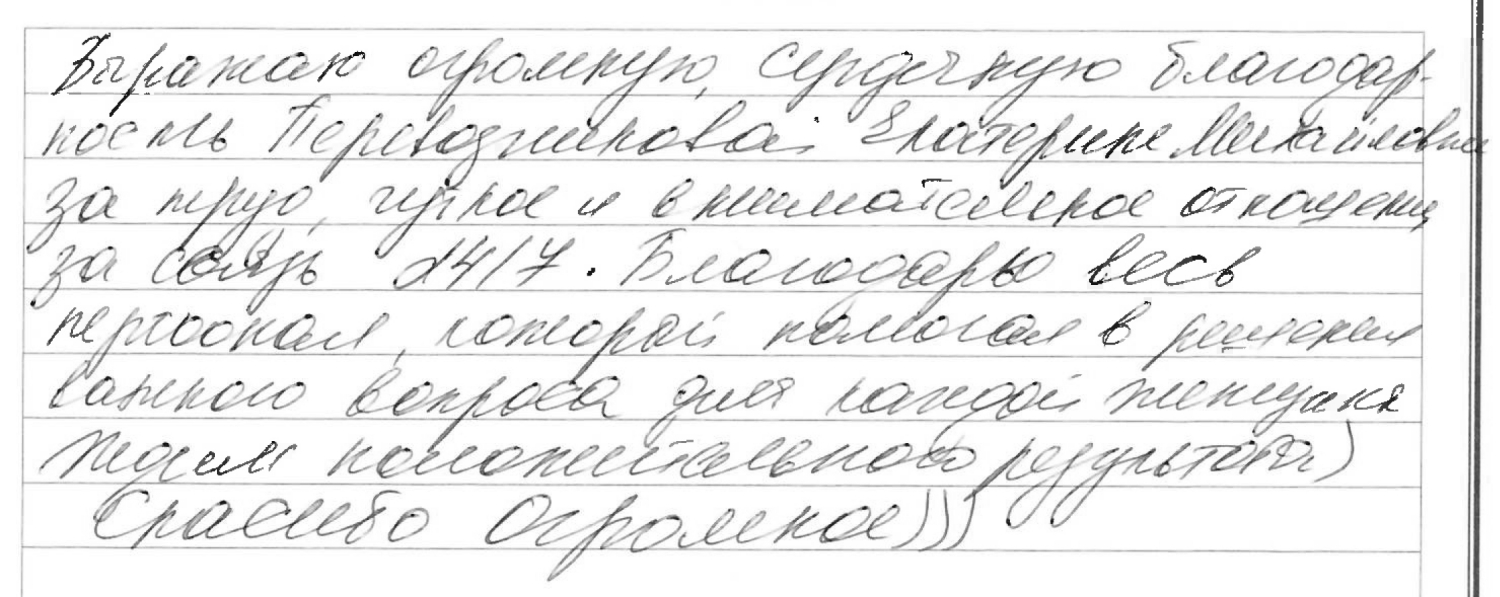 Выражаю огромную, сердечную благодар-
ность Перевозчиковой Екатерине Михайловне
за труд, чуткое и внимательное отношение,
за связь 24/7. Благодарю весь
персонал, который помогал в решении
важного вопроса для каждой женщины
Ждем положительного результата)
Спасибо Огромное)))